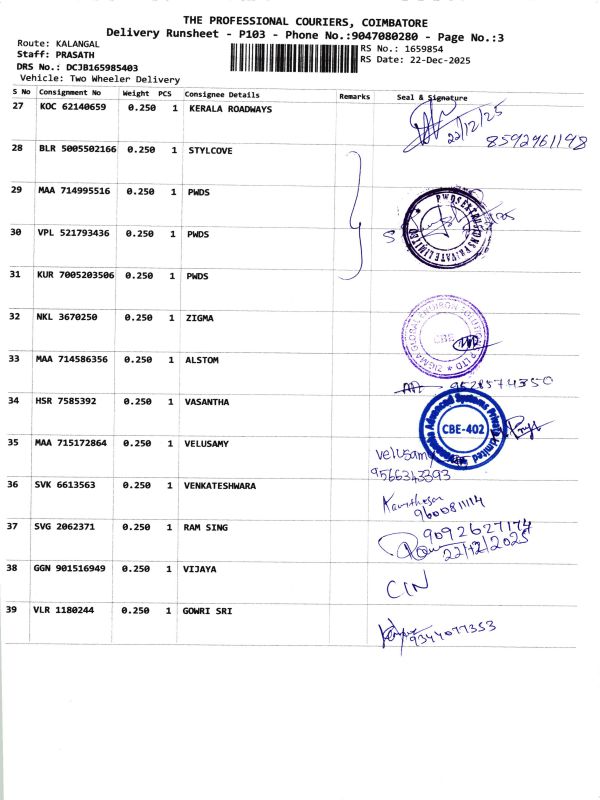 THE PROFESSIONAL COURIERS, COIMBATORE
Delivery Runsheet - P103 - Phone No.:9047080280 - Page No.:3
Route: KALANGAL
RS No.: 1659854
Staff: PRASATH
RS Date: 22-Dec-2025
DRS No.: DCJB165985403
Vehicle: Two Wheeler Delivery
S No Consignment No Weight PCS Consignee Details Remarks Seal & Signature
27 KOC 62140659 0.250 1 KERALA ROADWAYS 22/12/25 8592961198
28 BLR 5005502166 0.250 1 STYLCOVE
29 MAA 714995516 0.250 1 PWDS
30 VPL 521793436 0.250 1 PWDS
31 KUR 7005203506 0.250 1 PWDS
32 NKL 3670250 0.250 1 ZIGMA
33 MAA 714586356 0.250 1 ALSTOM
34 HSR 7585392 0.250 1 VASANTHA CBE-402
35 MAA 715172864 0.250 1 VELUSAMY velusamy
9566343393
36 SVK 6613563 0.250 1 VENKATESHWARA
9600811114
37 SVG 2062371 0.250 1 RAM SING 9092627174
22/12/2025
38 GGN 901516949 0.250 1 VIJAYA CIN
39 VLR 1180244 0.250 1 GOWRI SRI
9344077353